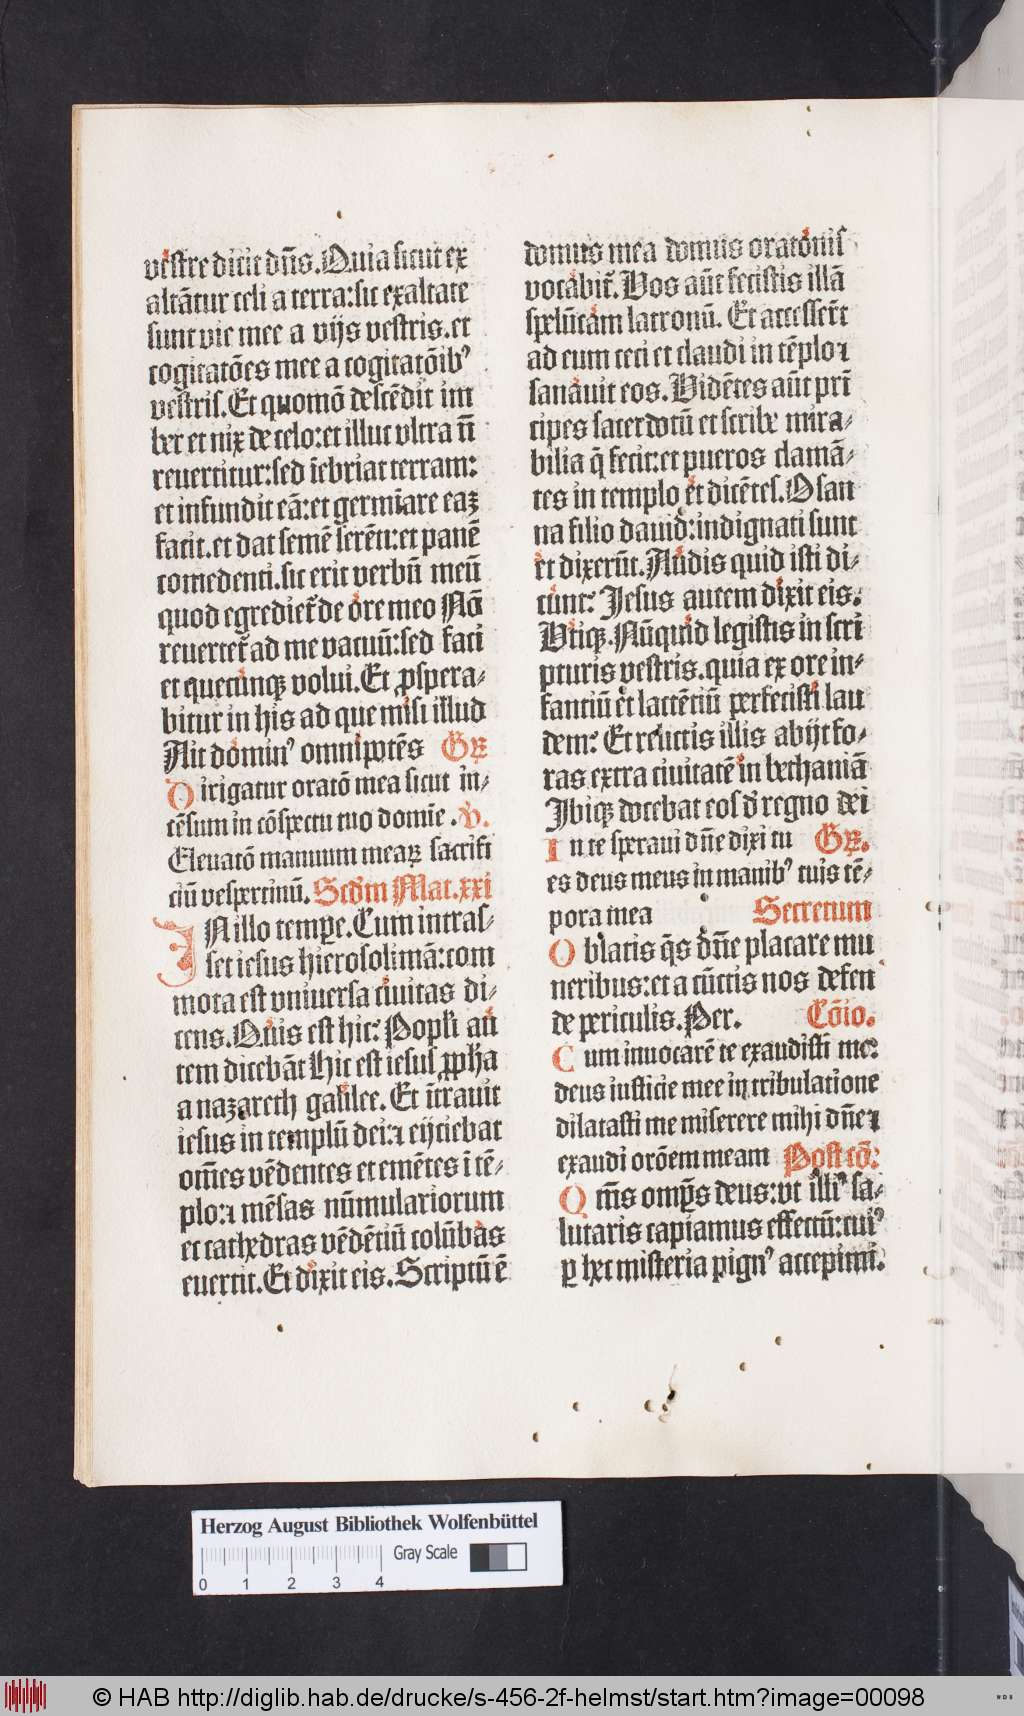 vestre dicit dñs. Quia sicut ex
altãtur celi a terra: sic exaltate
sunt vie mee a vijs vestris. et
cogitatões mee a cogitatõibꝰ
vestris. Et quomõ descẽdit im
ber et nix de celo: et illuc vltra nõ
reuertitur: sed ĩebriat terram:
et infundit eã: et germĩare eaꝫ
facit. et dat semẽ serẽti: et panẽ
comedenti. sic erit verbũ meũ
quod egrediet᷑ de ore meo Nõ
reuertet᷑ ad me vacuũ: sed faci
et quecũnqꝫ volui. Et ꝓspera⸗
bitur in his ad que misi illud
Ait dominꝰ omnipotẽs Gꝶ
Dirigatur oratõ mea sicut in⸗
cẽsum in cõspectu tuo domĩe. V.
Eleuatõ manuum meaꝝ sacrifi
ciũ vespertinũ. Scd̃m Mat. xxi
IN illo tempe. Cum intras⸗
set iesus hierosolimã: com
mota est vniuersa ciuitas di⸗
cens. Quis est hic: Popl̃i aũ
tem dicebãt Hic est iesus ꝓph̃a
a nazareth galilee. Et ĩtrauit
iesus in templũ dei: ⁊ eijciebat
om̃es vẽdentes et emẽtes ĩ tẽ⸗
plo: ⁊ mẽsas nũmulariorum
et cathedras vẽdẽtiũ colũbas
euertit. Et dixit eis. Scriptũ ẽ
domus mea domus oratõnis
vocabit᷑. Vos aũt fecistis illã
spelũcam latronũ. Et accesserũt
ad eum ceci et claudi in tẽplo ⁊
sanauit eos. Vidẽtes aũt prĩ
cipes sacerdotũ et scribe mira⸗
bilia q̃ fecit: et pueros clamã⸗
tes in templo et dicẽtes. Osan
na filio dauid: indignati sunt
et dixerũt. Audis quid isti di⸗
cunt: Jesus autem dixit eis.
Vtiqꝫ. Nũquid legistis in scri
pturis vestris. quia ex ore in⸗
fantiũ et lactẽtiũ perfecisti lau
dem: Et relictis illis abijt fo⸗
ras extra ciuitatẽ in bethaniã
Jbiqꝫ docebat eos d̃ regno dei
In te speraui dñe dixi tu Gꝶ.
es deus meus in manibꝰ tuis tẽ⸗
pora mea Secretum
Oblatis q̃s dñe placare mu
neribus: et a cũctis nos defen
de periculis. Per. Cõio.
Cum inuocarẽ te exaudisti me:
deus iusticie mee in tribulatione
dilatasti me miserere mihi dñe ⁊
exaudi orõem meam Post cõ:
Qm̃s omp̃s deus: vt illiꝰ sa⸗
lutaris capiamus effectũ: cuiꝰ
ꝑ hec misteria pignꝰ accepimꝰ.
Herzog August Bibliothek Wolfenbüttel
Gray Scale
0 1 2 3 4
© HAB http://diglib.hab.de/drucke/s-456-2f-helmst/start.htm?image=00098